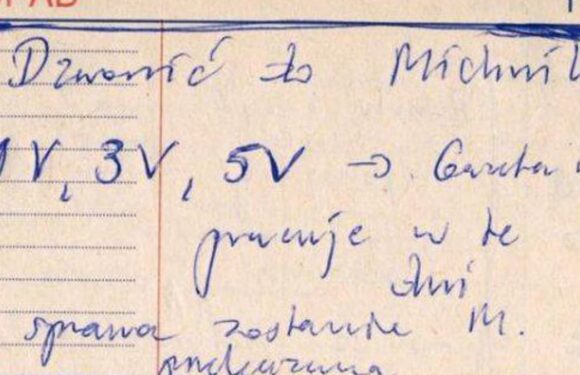 Dzwonić do Michnik
1V, 3V, 5V → Gazeta
pracuje w te
dni
sprawa zostanie M.
przekazana